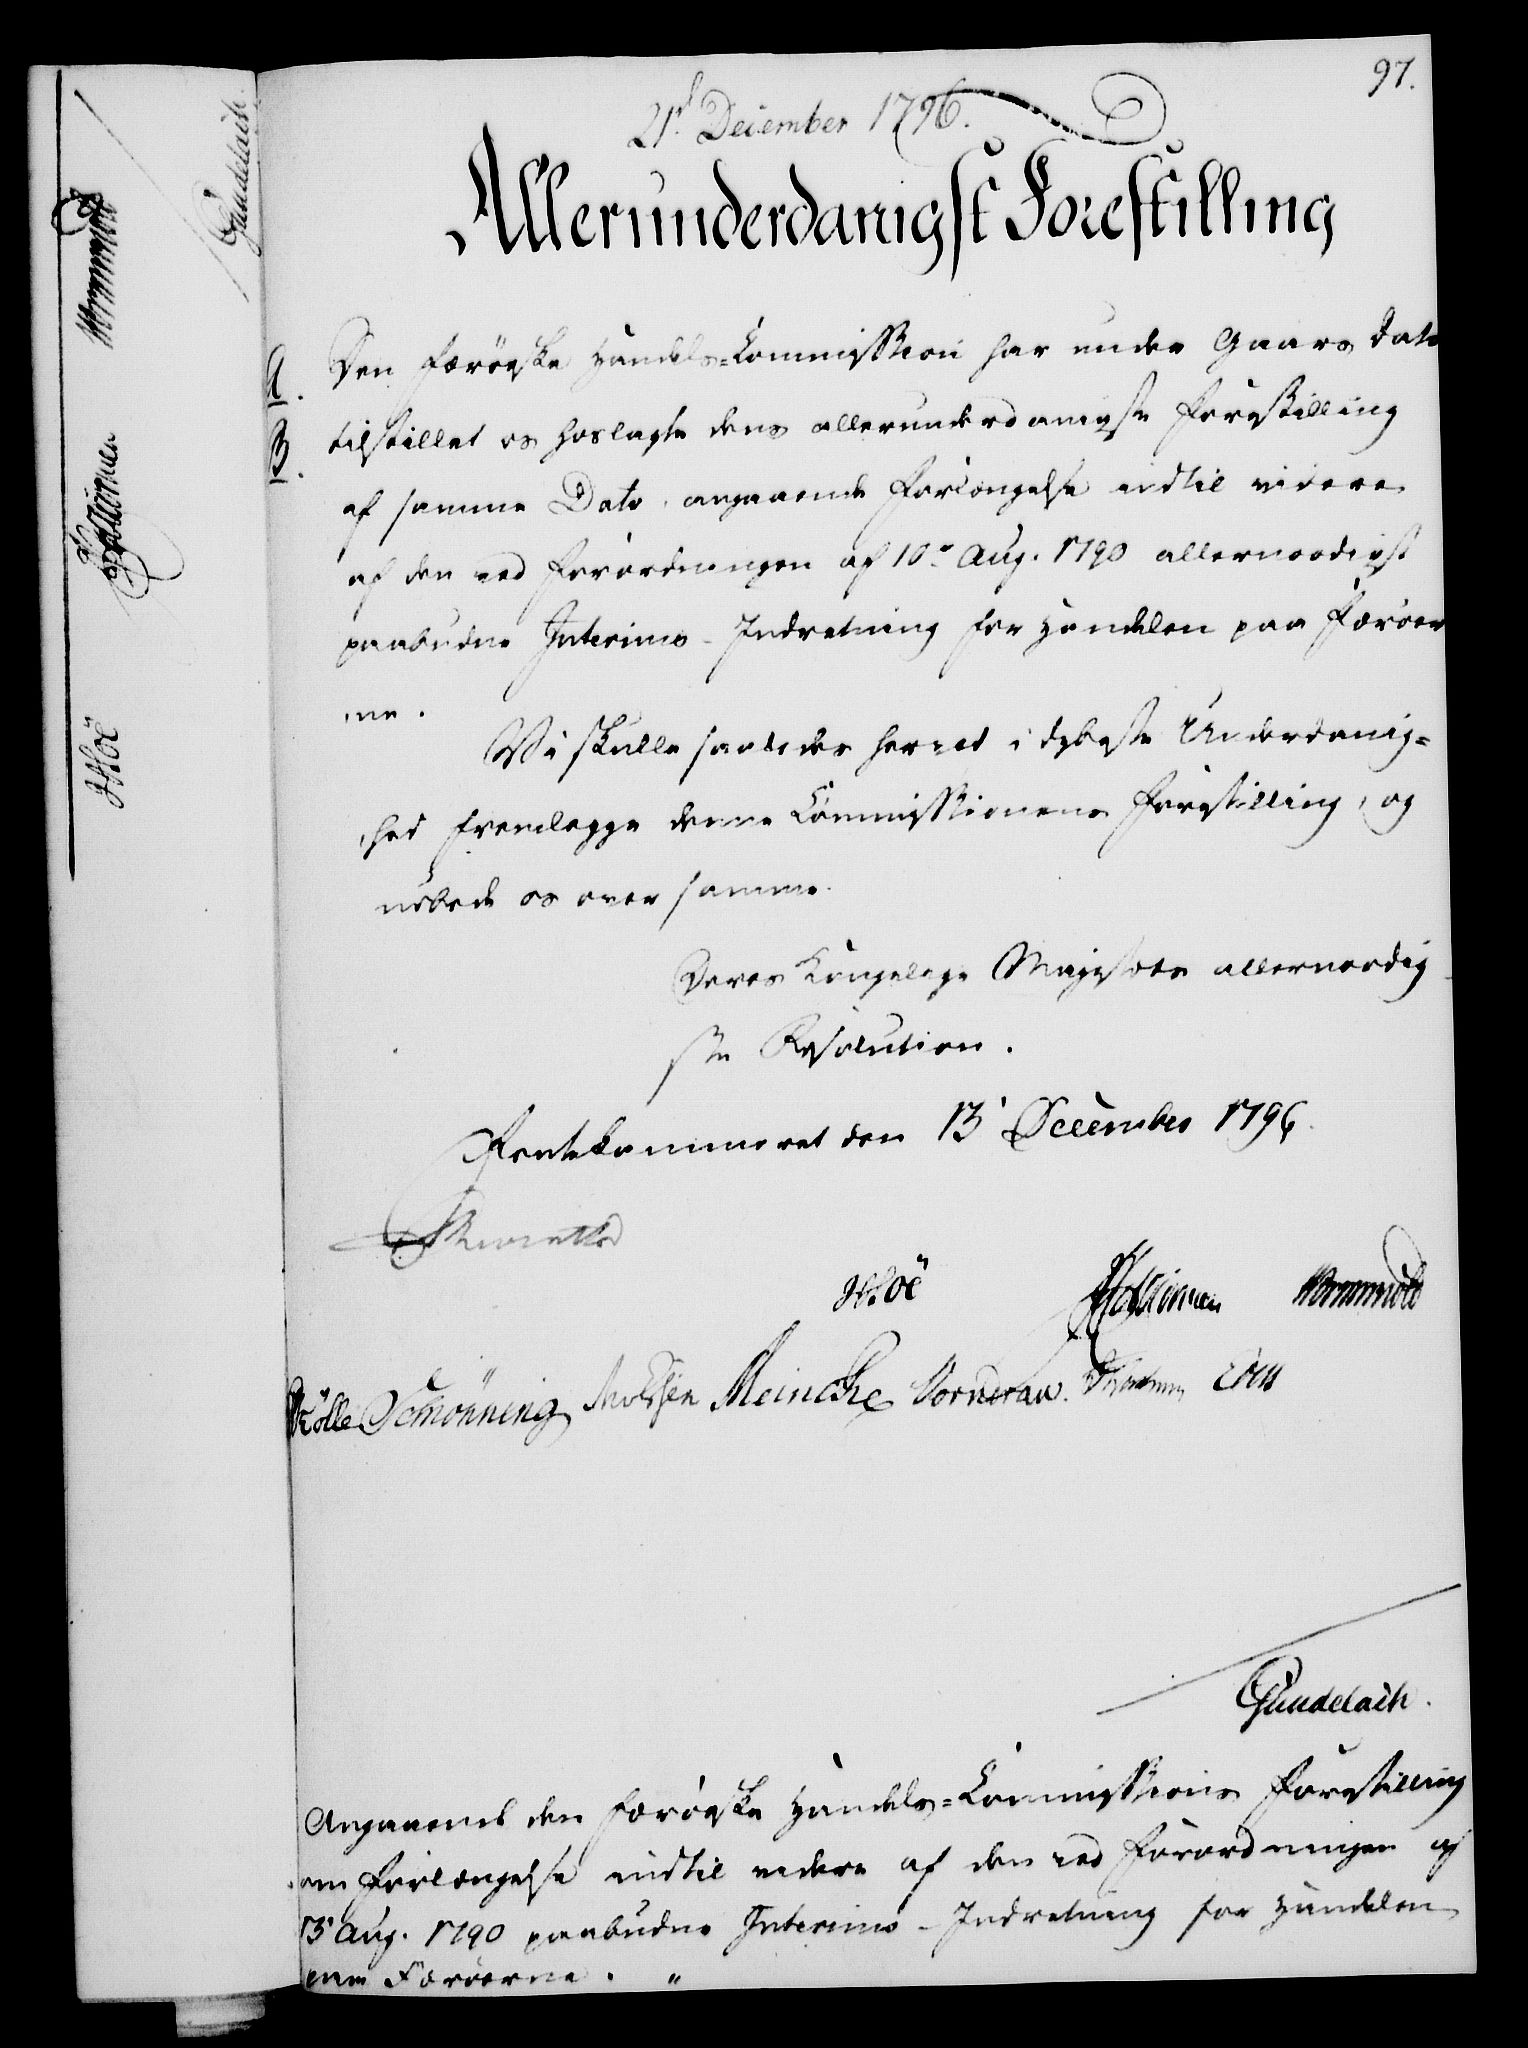 97.
21d December 1796.
Allerunderdanigst Forestilling
A. Den færöeske Handels=Commission har under Gaars Dato
B. tilstillet os hoslagte dens allerunderdanigste Forestilling
af samme Dato, angaaende Forlængelse indtil videre
af den ved Forordningen af 10de Aug. 1790 allernaadigst
paabudne Interims-Indretning for Handelen paa Færöer
ne.
Vi skulle saaledes herved i dybeste Underdanig=
hed fremlægge denne Commissionens Forestilling, og
udbede os over samme
Deres Kongelige Majestæts allernaadig
ste Resolution.
Rentekammeret den 13 December 1796.
Höe Wormskiold
Rölle Schönning Meincke Vornderau.
Gundelach.
Angaaende den færöeske Handels=Commissions Forestilling
om Forlængelse indtil videre af den ved Forordningen af
13 Aug. 1790 paabudne Interims-Indretning for Handelen
paa Færöerne. "
Gundelach.
Wormskiold
Höe